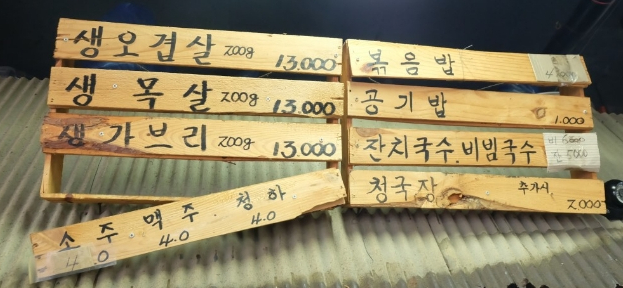 생오겹살 200g 13.000
생 목 살 200g 13.000
생 가브리 200g 13.000
소주 맥주 청하
4.0 4.0 4.0
볶음밥
공기밥 1.000
잔치국수.비빔국수
청국장 추가시 2,000